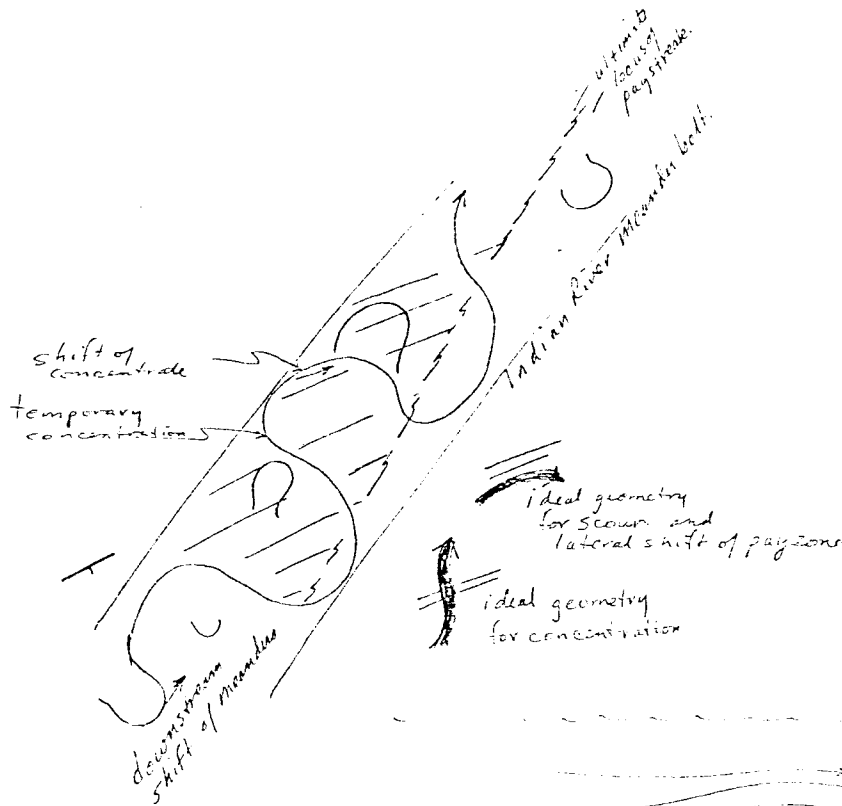 ultimate
locus of
paystreak.
Indian River Meander belt.
shift of
concentrate
temporary
concentration
ideal geometry
for scour and
lateral shift of payzone
ideal geometry
for concentration
downstream
shift of meanders